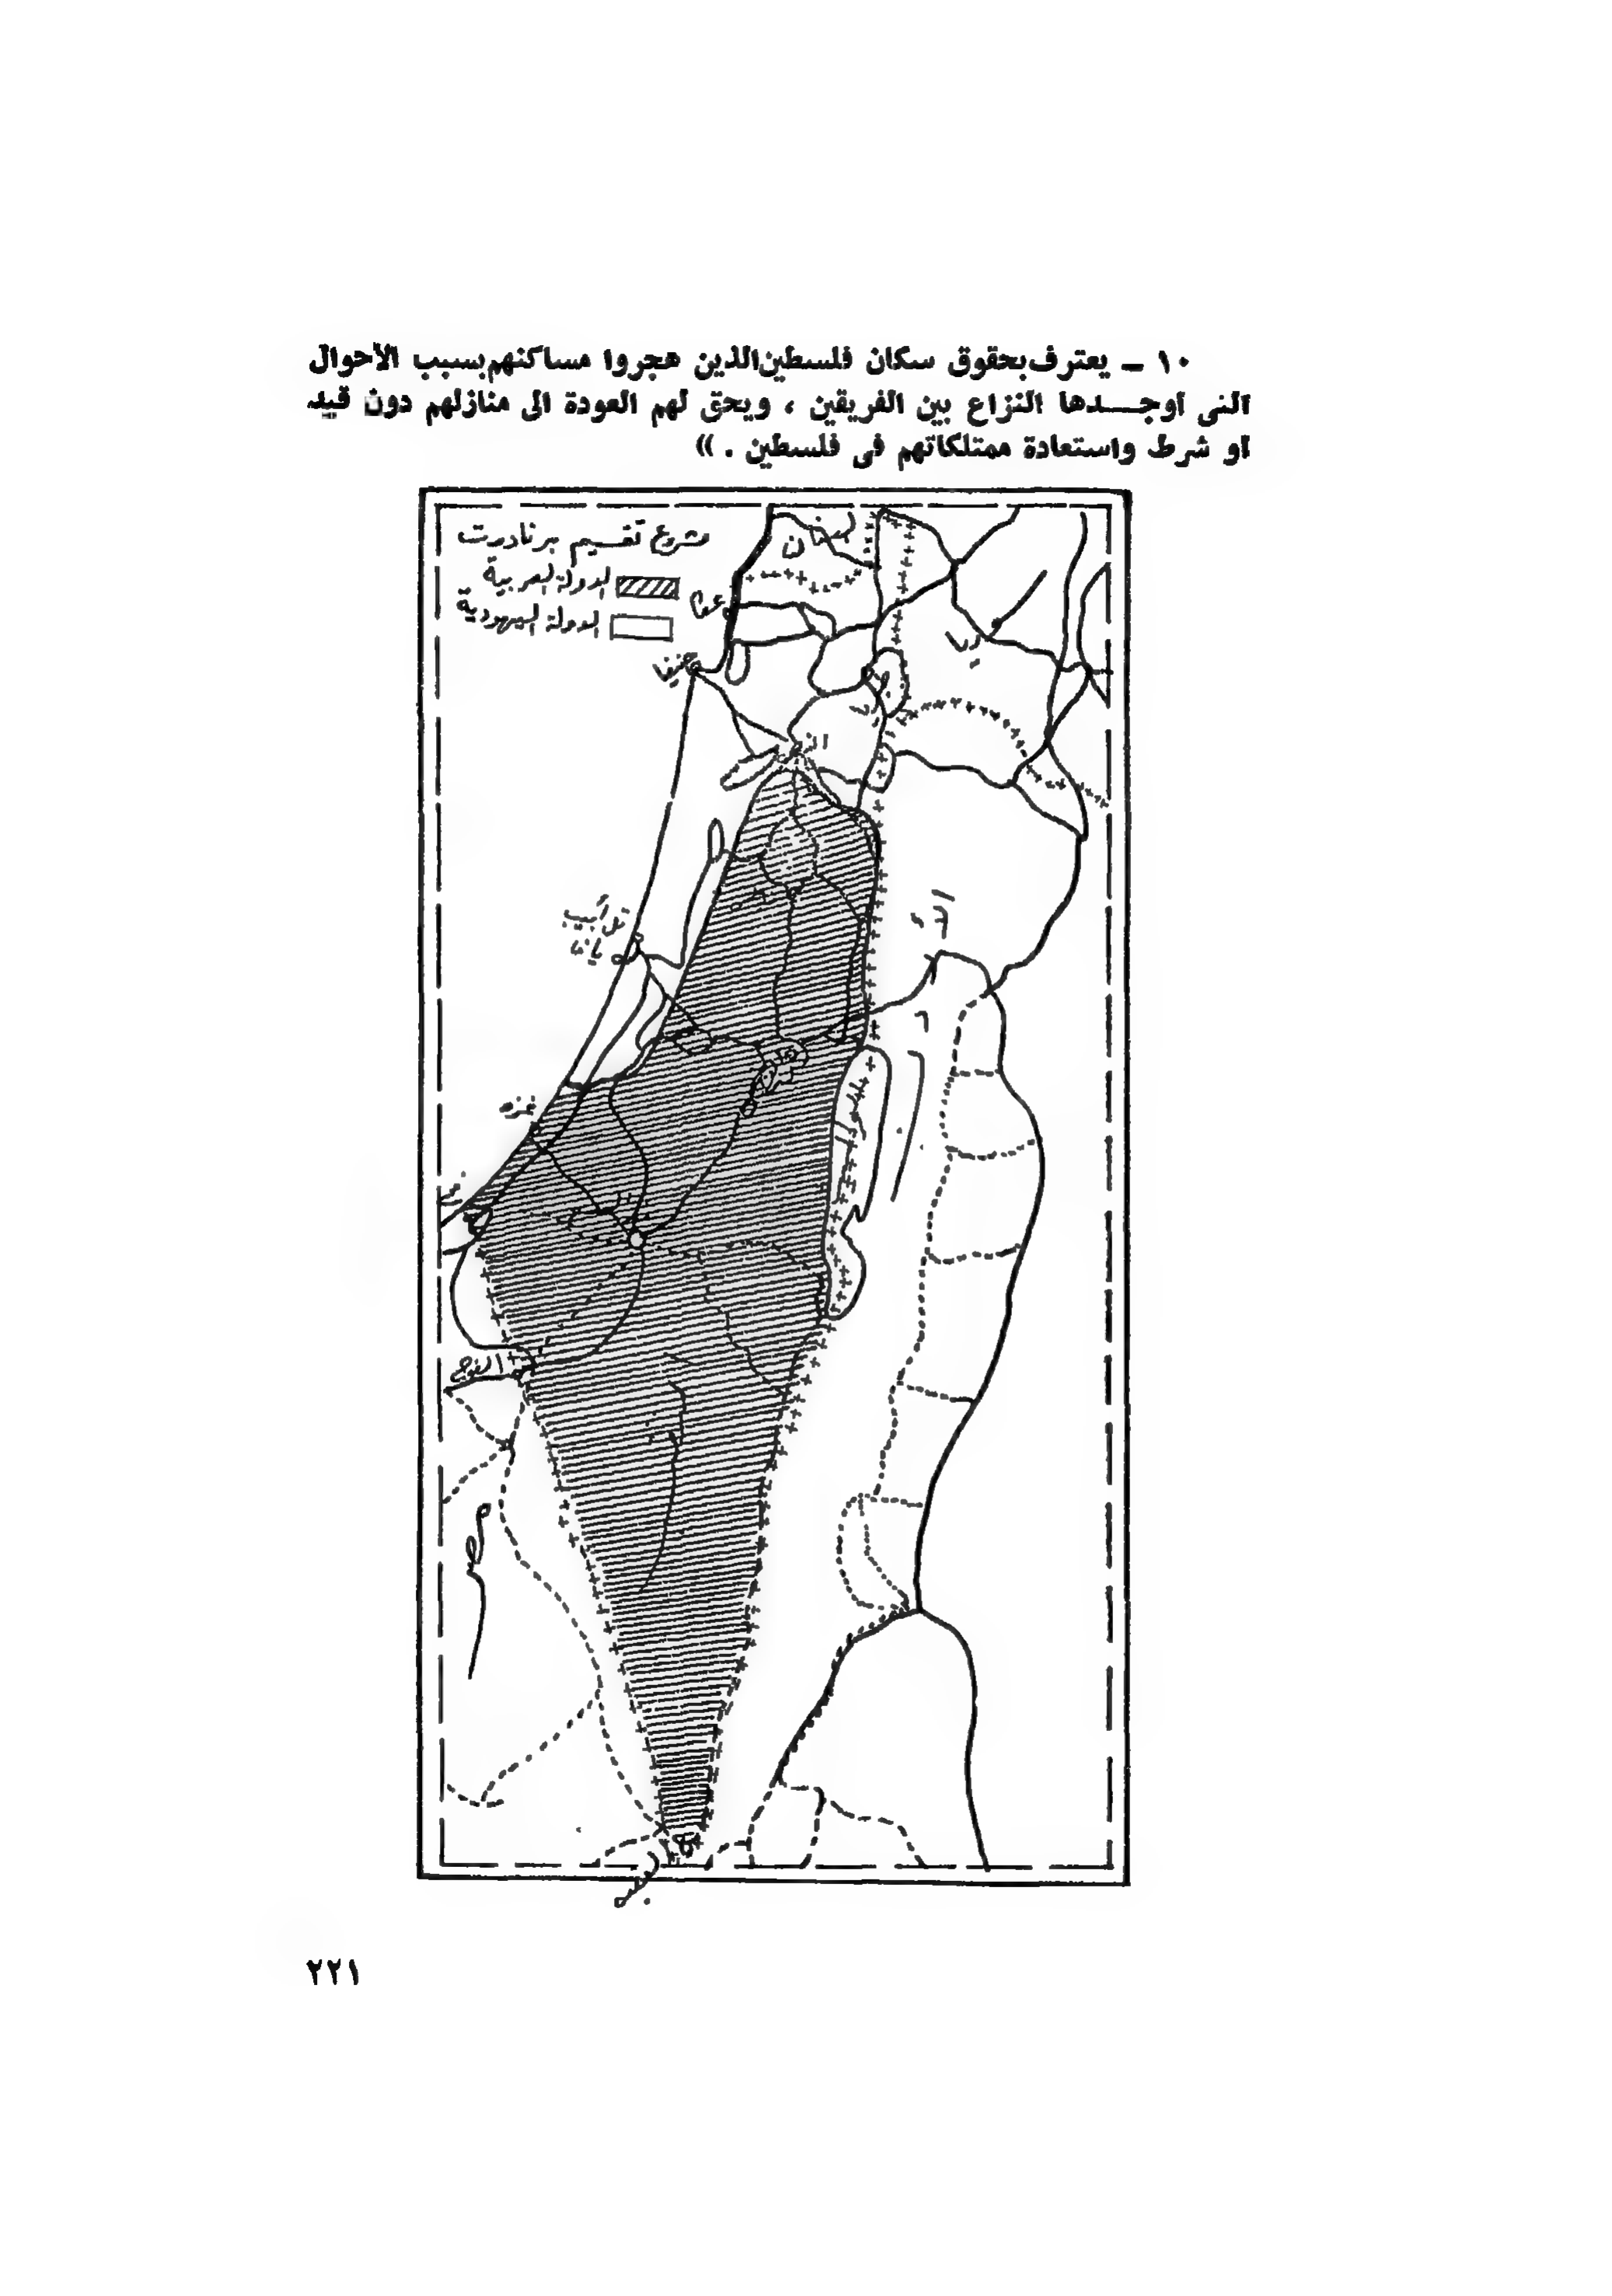 ١٠ ــ يعترف بحقوق سكان فلسطين الذين هجروا مساكنهم بسبب الأحوال
التى أوجــدها النزاع بين الفريقين ، ويحق لهم العودة الى منازلهم دون قيد
او شرط واستعادة ممتلكاتهم فى فلسطين . ))
مشروع تقسيم برنادوت
الدولة العربية
الدولة اليهودية
عكا
تل أبيب
يافا
غزه
العوجه
مصر
٢٢١